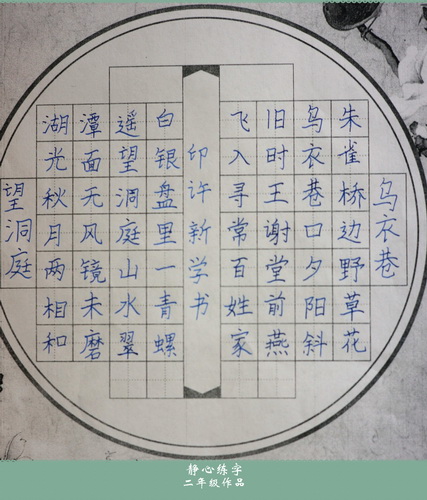 乌衣巷
朱雀桥边野草花
乌衣巷口夕阳斜
旧时王谢堂前燕
飞入寻常百姓家
望洞庭
湖光秋月两相和
潭面无风镜未磨
遥望洞庭山水翠
白银盘里一青螺
印许新学书
静心练字
二年级作品